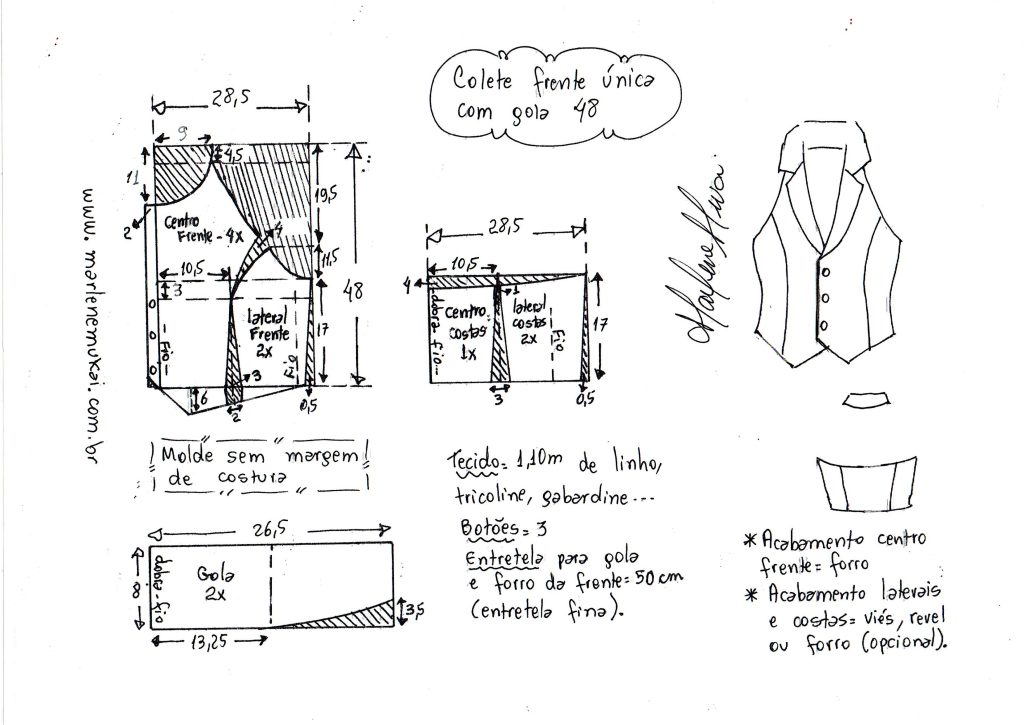 Colete frente única
com gola 48
28,5
9
4,5
11
19,5
2
Centro
Frente - 4x
4
11,5
10,5
3
48
17
lateral
Frente
2x
Fio
Fio
3
6
2
0,5
www.marlenemukai.com.br
Marlene Mukai
28,5
10,5
4
1
dobra fio
Centro
costas
1x
lateral
costas
2x
Fio
17
3
0,5
Molde sem margem
de costura
26,5
8
dobra-fio
Gola
2x
3,5
13,25
Tecido= 1,10m de linho,
tricoline, gabardine...
Botões= 3
Entretela para gola
e forro da frente= 50 cm
(entretela fina).
* Acabamento centro
frente= forro
* Acabamento laterais
e costas= viés, revel
ou forro (opcional).